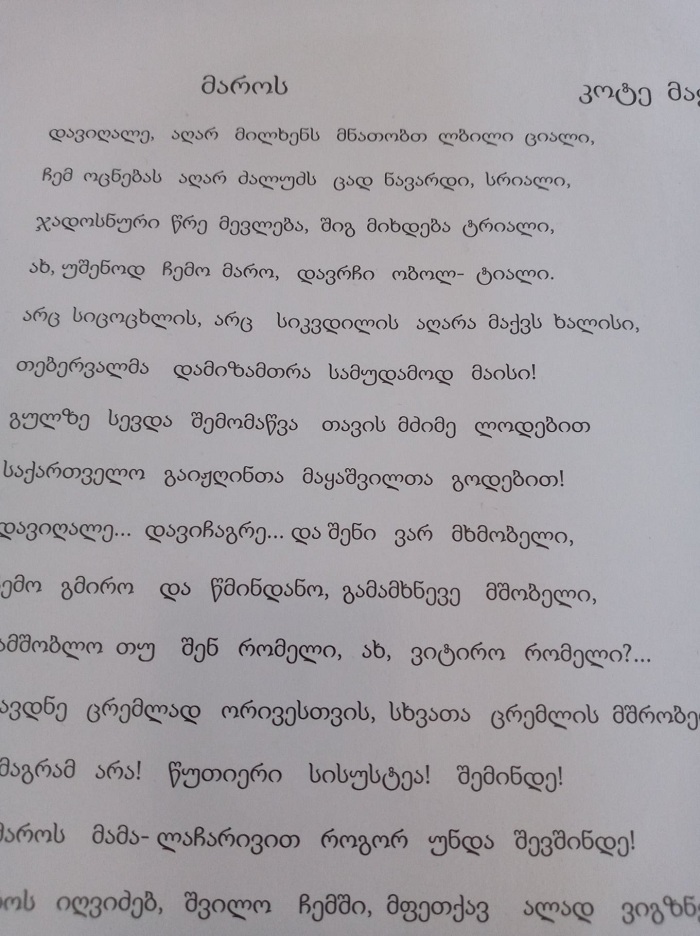 მაროს
კოტე
დავიღალე, აღარ მილხენს მნათობთ ლბილი ციალი,
ჩემ ოცნებას აღარ ძალუძს ცად ნავარდი, სრიალი,
ჯადოსნური წრე მევლება, შიგ მიხდება ტრიალი,
ახ, უშენოდ ჩემო მარო, დავრჩი ობოლ- ტიალი.
არც სიცოცხლის, არც სიკვდილის აღარა მაქვს ხალისი,
თებერვალმა დამიზამთრა სამუდამოდ მაისი!
გულზე სევდა შემომაწვა თავის მძიმე ლოდებით
საქართველო გაიჟღინთა მაყაშვილთა გოდებით!
დავიღალე... დავიჩაგრე... და შენი ვარ მხმობელი,
გმირო და წმინდანო, გამამხნევე მშობელი,
თუ შენ რომელი, ახ, ვიტირო რომელი?...
ცრემლად ორივესთვის, სხვათა ცრემლის
მაგრამ არა! წუთიერი სისუსტეა! შემინდე!
მაროს მამა- ლაჩარივით როგორ უნდა შევშინდე!
იღვიძებ, შვილო ჩემში, მფეთქავ ალად